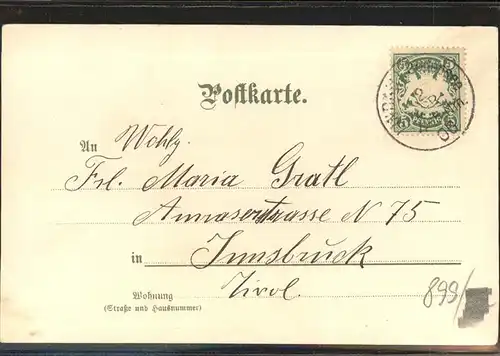 Postkarte.
An Wohlg.
Frl. Maria Gratl
Annaserstrasse N 75
in Innsbruck
Tirol.
Wohnung
(Straße und Hausnummer)
899/